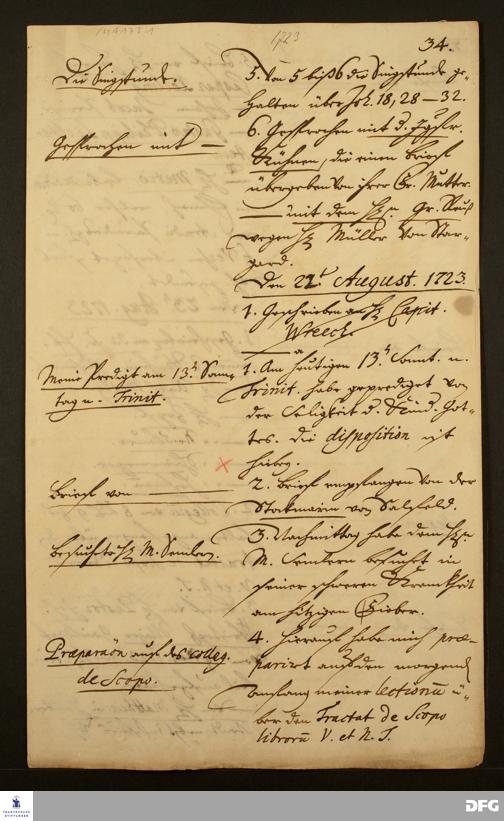 1723
34.
Die Singstunde.
5. Von 5 biß 6 die Singstunde ge-
halten über Joh. 18, 28 – 32.
Gesprochen mit —
6. Gesprochen mit d. Jgfr.
Kühnen, die einen Brieff
übergeben von ihrer Gr. Mutter.
— mit dem H. Gr. Reuß
wegen H. Müller von Star-
gard.
Den 22t August. 1723.
1. Geschrieben an H. Capit.
Wreech.
Meine Predigt am 13t Sonn-
tag n. Trinit.
1. Am heutigen 13t Sonnt. n.
Trinit. habe geprediget von
der Seligkeit d. Kind. Got-
tes. die disposition ist
hiebey.
Brieff von —
2. Brieff empfangen von der
von Salfeld.
Besuch bey H. M. Semlern.
3. Nachmittag habe dem H.
M. Semlern besucht in
seiner schweren Kranckheit
am hitzigen Fieber.
Præparaōn auf das colleg.
de Scopo.
4. Hierauf habe mich præ-
parirt auf den morgend
anfang meiner lectionū ü-
ber den Tractat de Scopo
librorū V. et N. T.
FRANCKESCHE
STIFTUNGEN
DFG